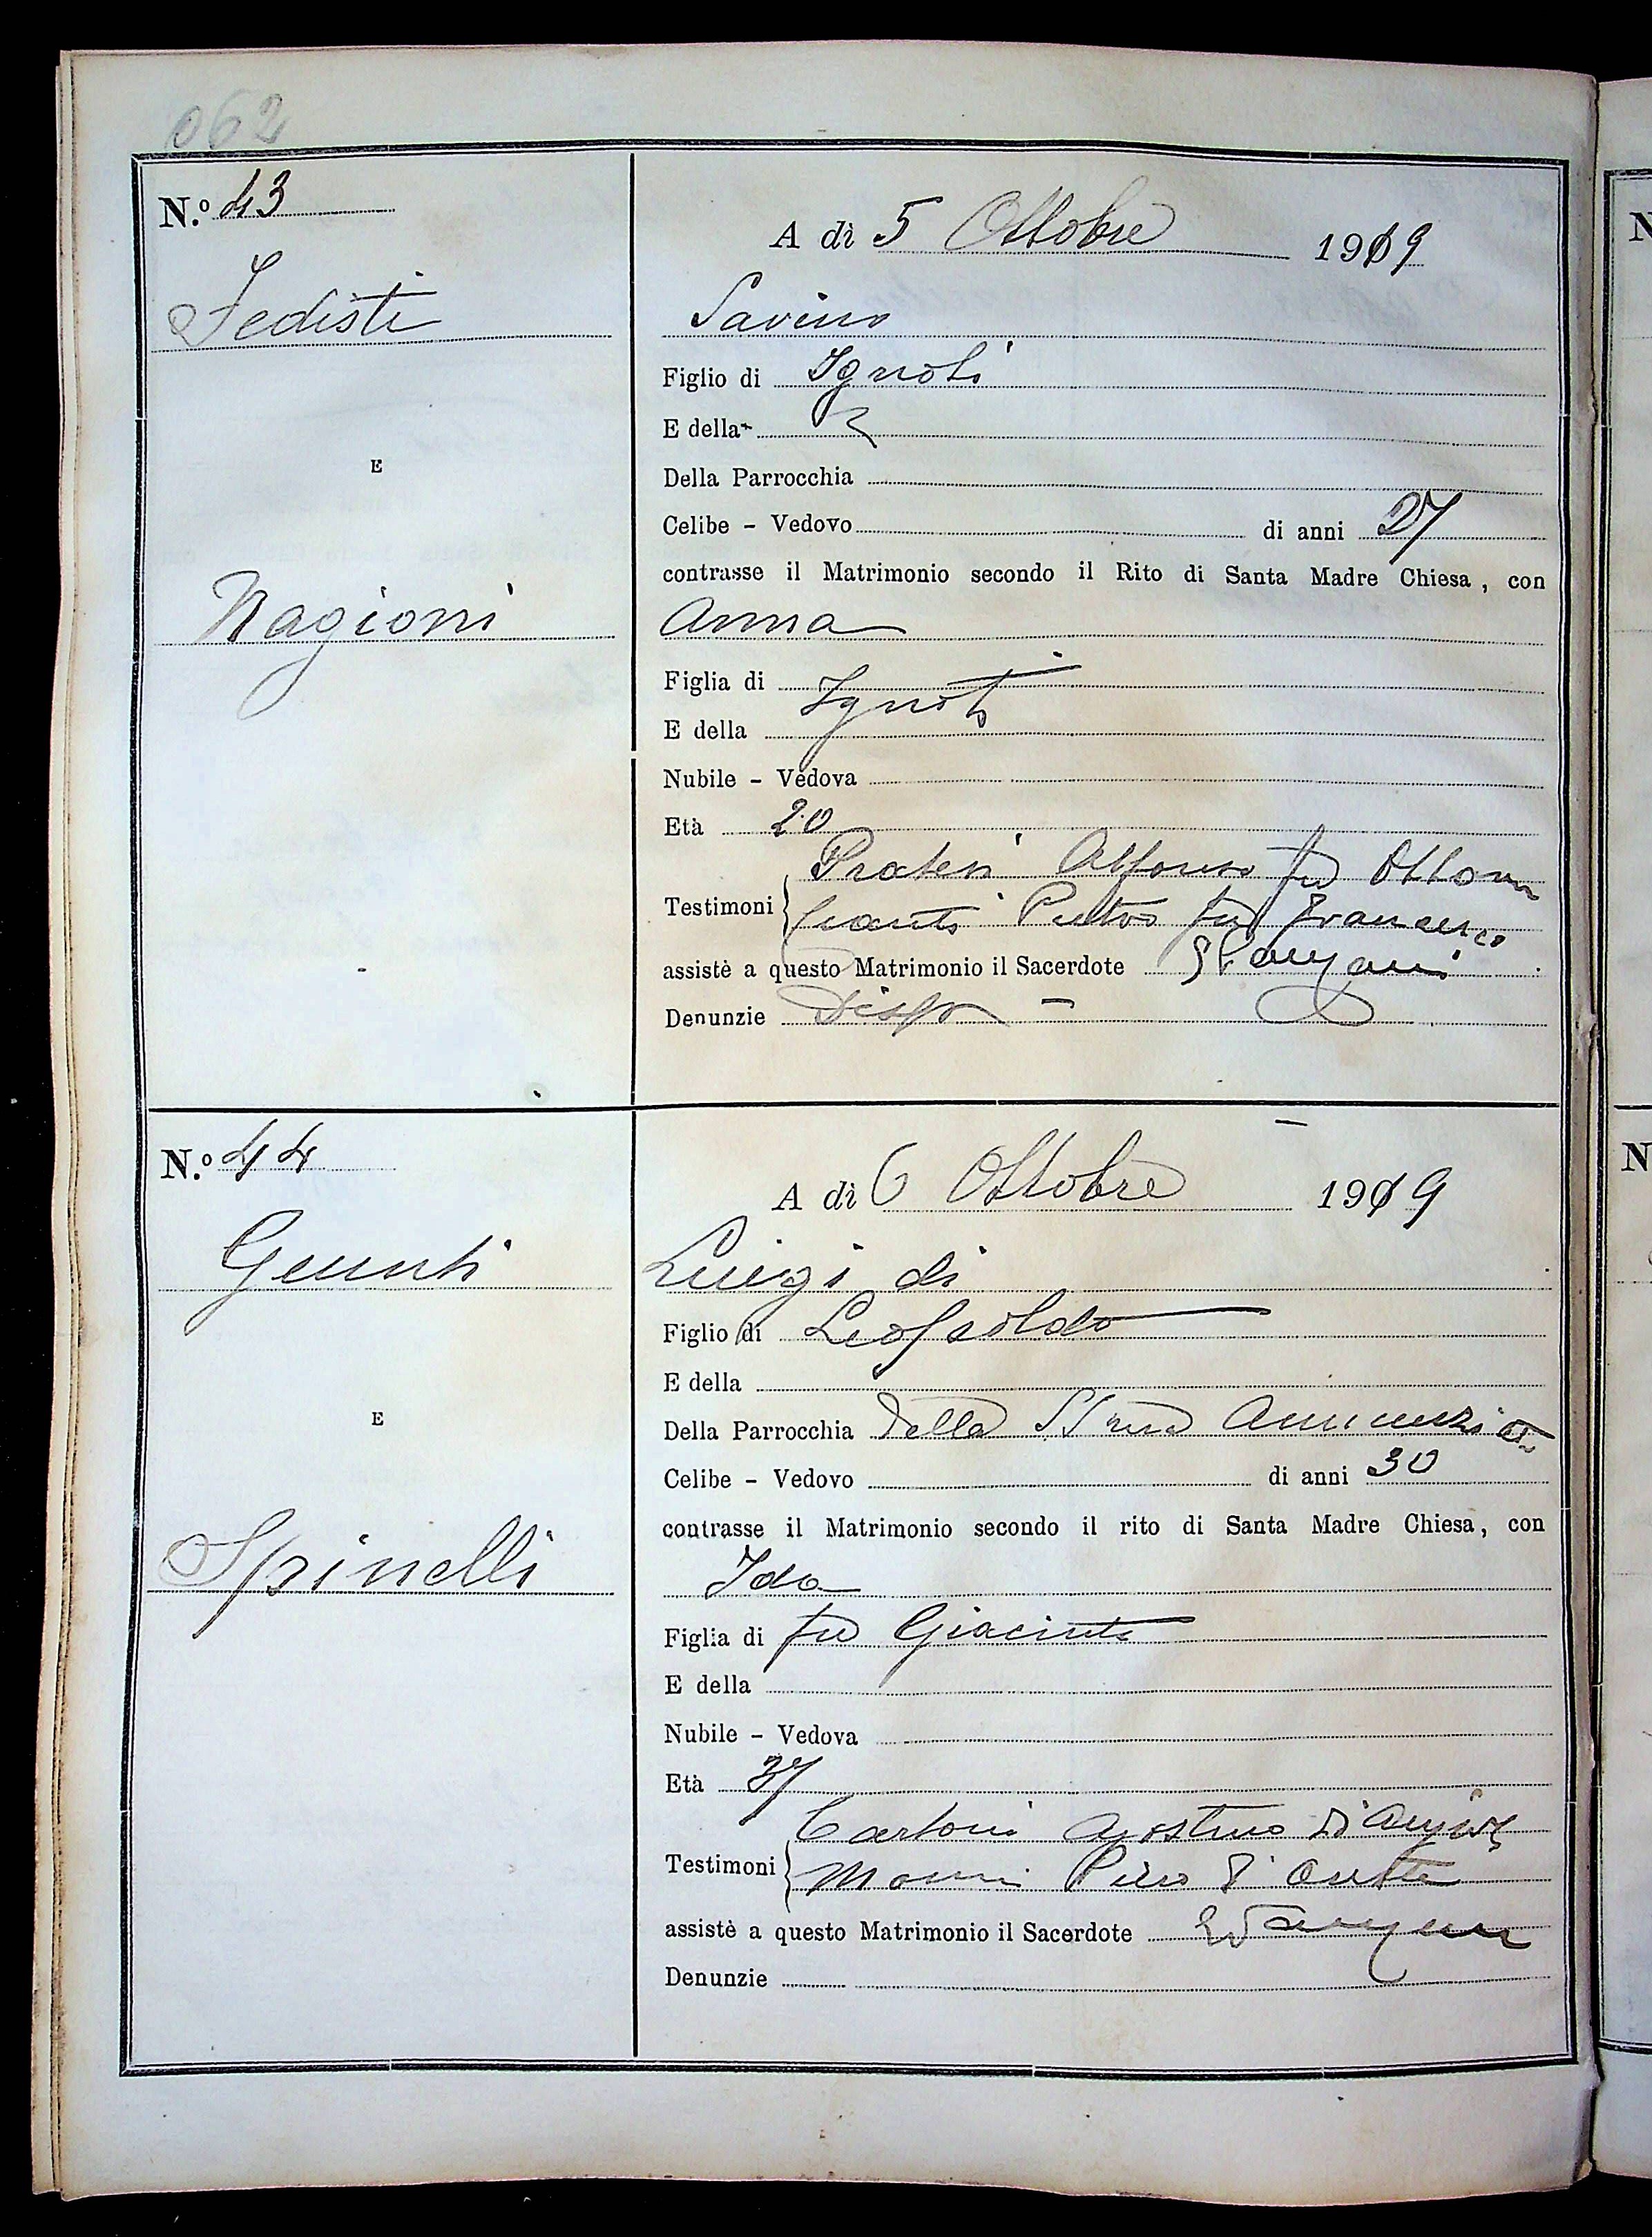 062
N.º 43
A dì 5 Ottobre 1919
Fedisti
Savino
Figlio di Ignoti
E della
E
Della Parrocchia
Celibe - Vedovo di anni 27
contrasse il Matrimonio secondo il Rito di Santa Madre Chiesa, con
Nagioni
Anna
Figlia di Ignoti
E della
Nubile - Vedova
Età 20
Pratesi Alfonso fu
Testimoni fu Francesco
assistè a questo Matrimonio il Sacerdote
Denunzie Disp
N.º 44
A dì 6 Ottobre 1919
Giunti
Luigi di
Figlio di Leopoldo
E della
E
Della Parrocchia della SS.ma Annunziata
Celibe - Vedovo di anni 30
contrasse il Matrimonio secondo il rito di Santa Madre Chiesa, con
Spinelli
Ida
Figlia di fu Giacinto
E della
Nubile - Vedova
Età 37
Cartoni Agostino di
Testimoni Piero d
assistè a questo Matrimonio il Sacerdote
Denunzie
N
N